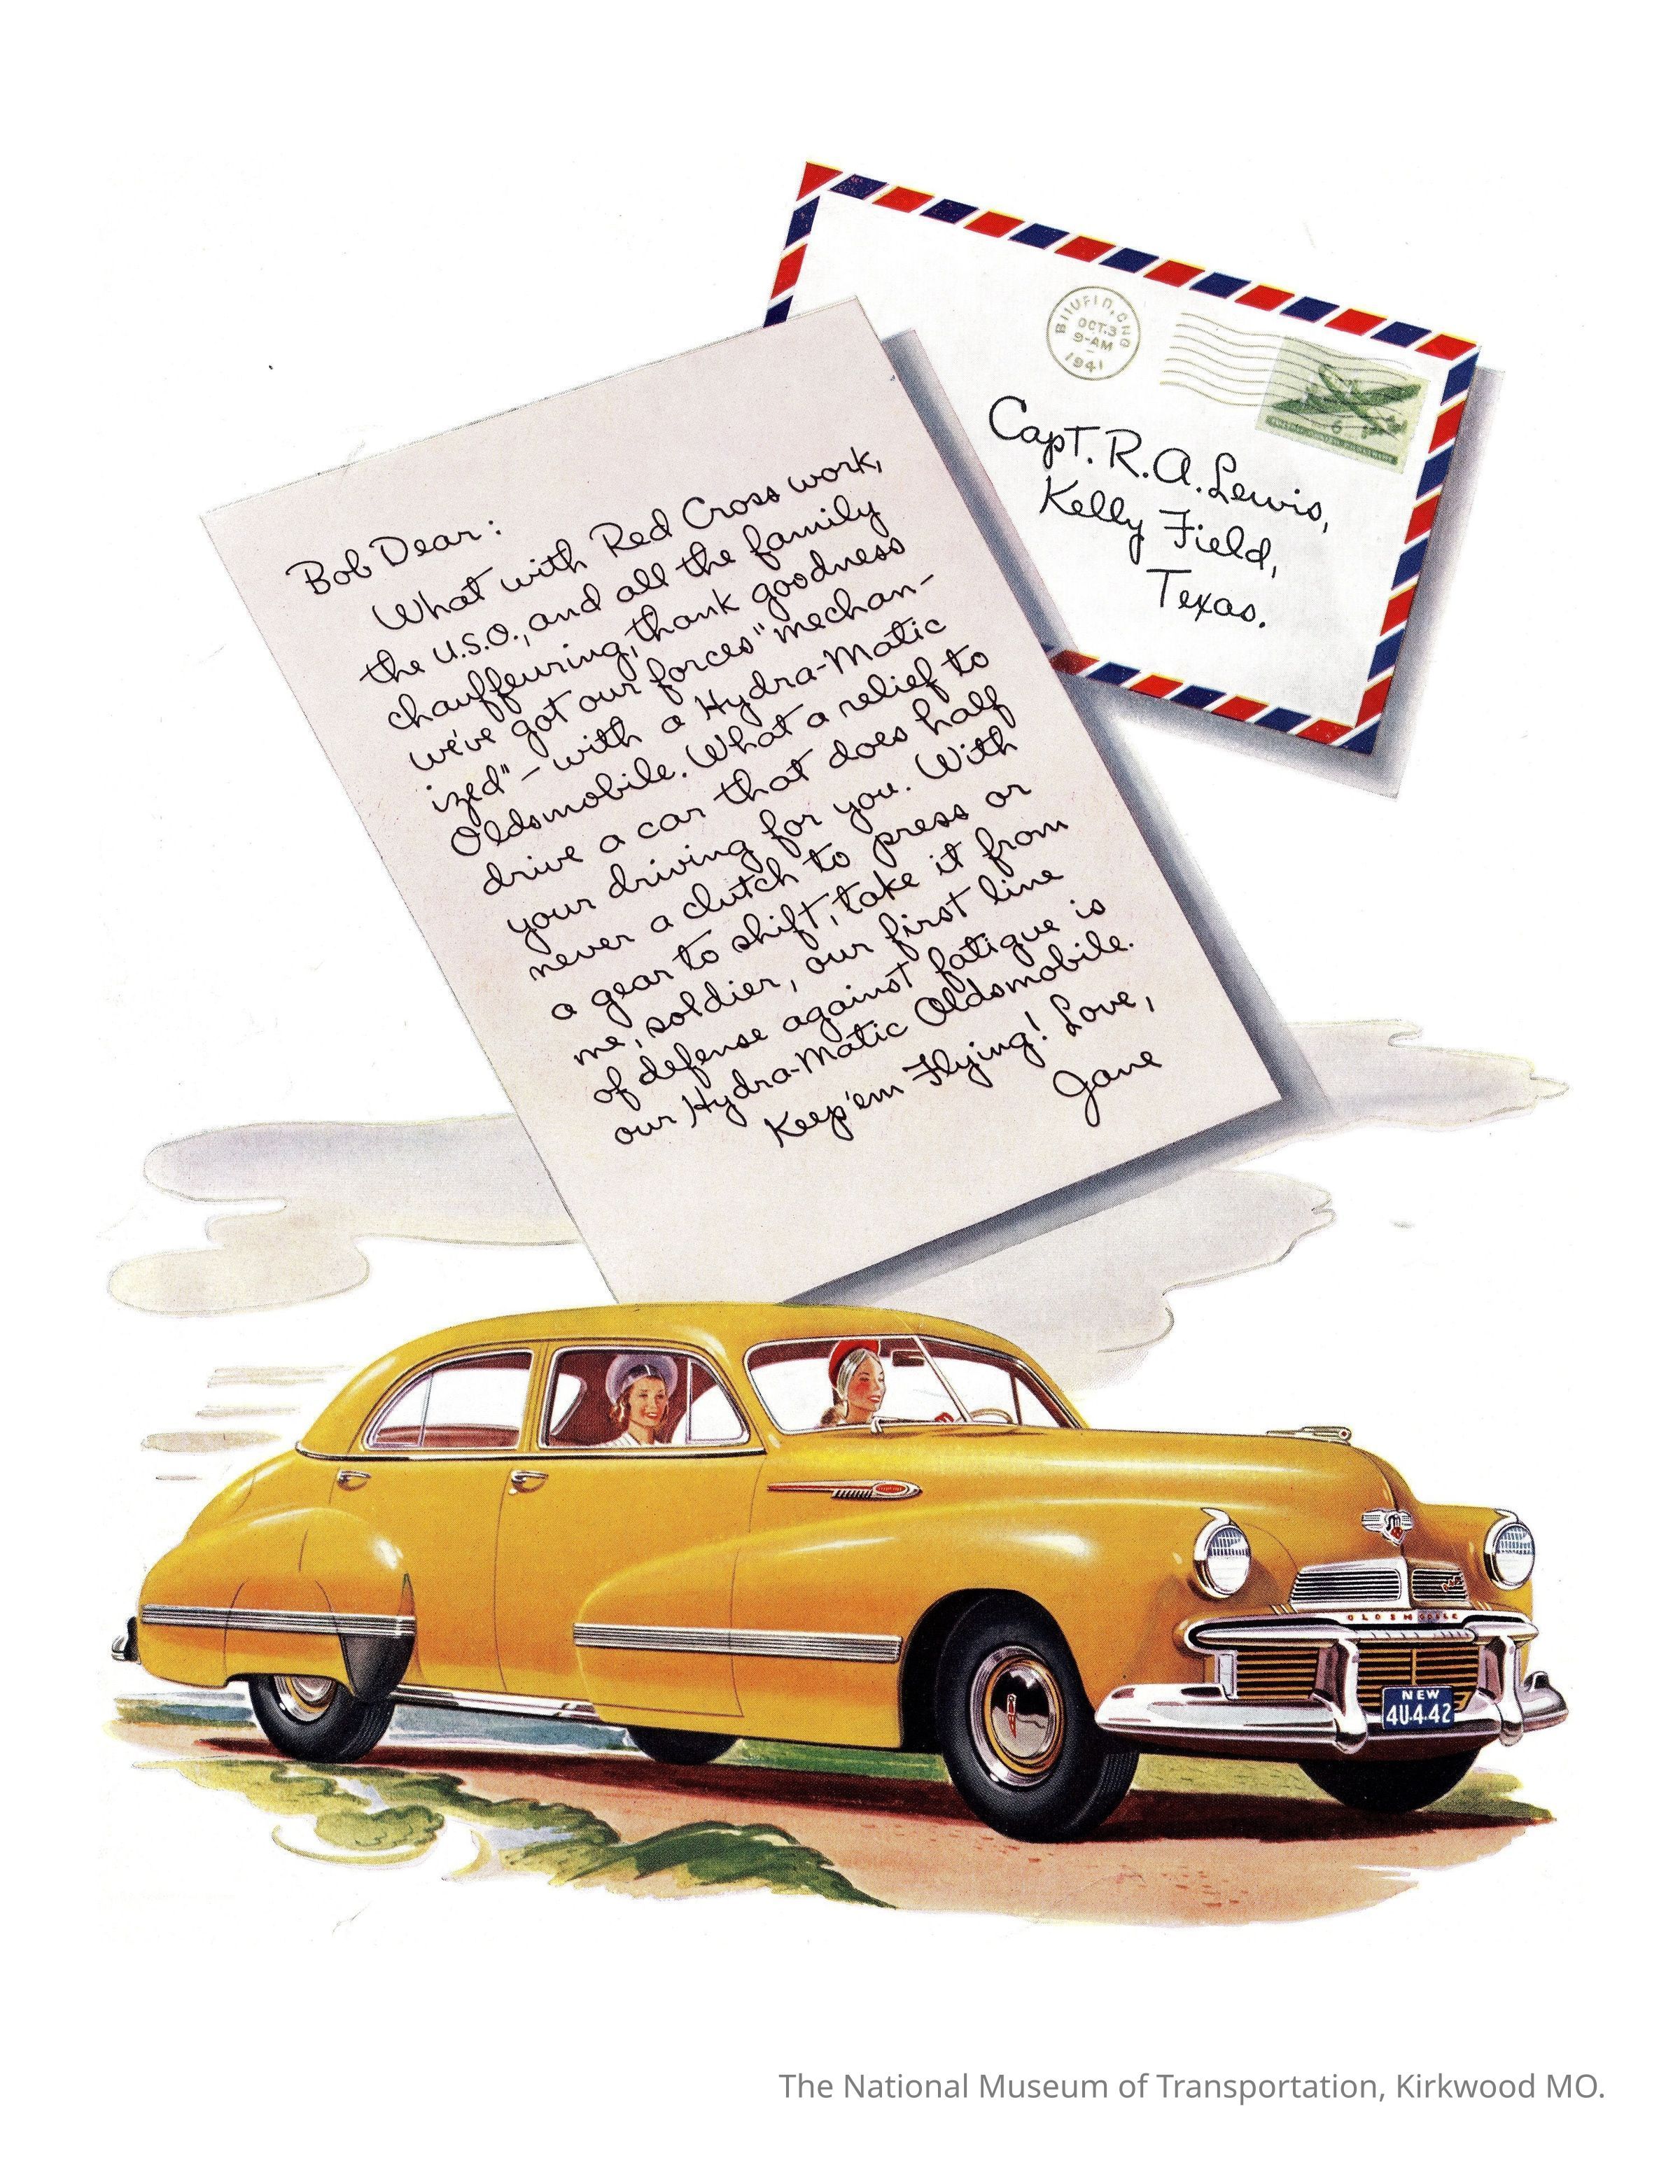 OCT.3
9-AM
1941
6
Capt. R.A. Lewis,
Kelly Field,
Texas.
Bob Dear:
What with Red Cross work,
the U.S.O., and all the family
chauffeuring, thank goodness
we've got our forces "mechan-
ized" — with a Hydra-Matic
Oldsmobile. What a relief to
drive a car that does half
your driving for you. With
never a clutch to press or
a gear to shift, take it from
me, soldier, our first line
of defense against fatigue is
our Hydra-Matic Oldsmobile.
Keep 'em Flying! Love,
Jane
OLDSMOBILE
NEW
4U-4-42
The National Museum of Transportation, Kirkwood MO.